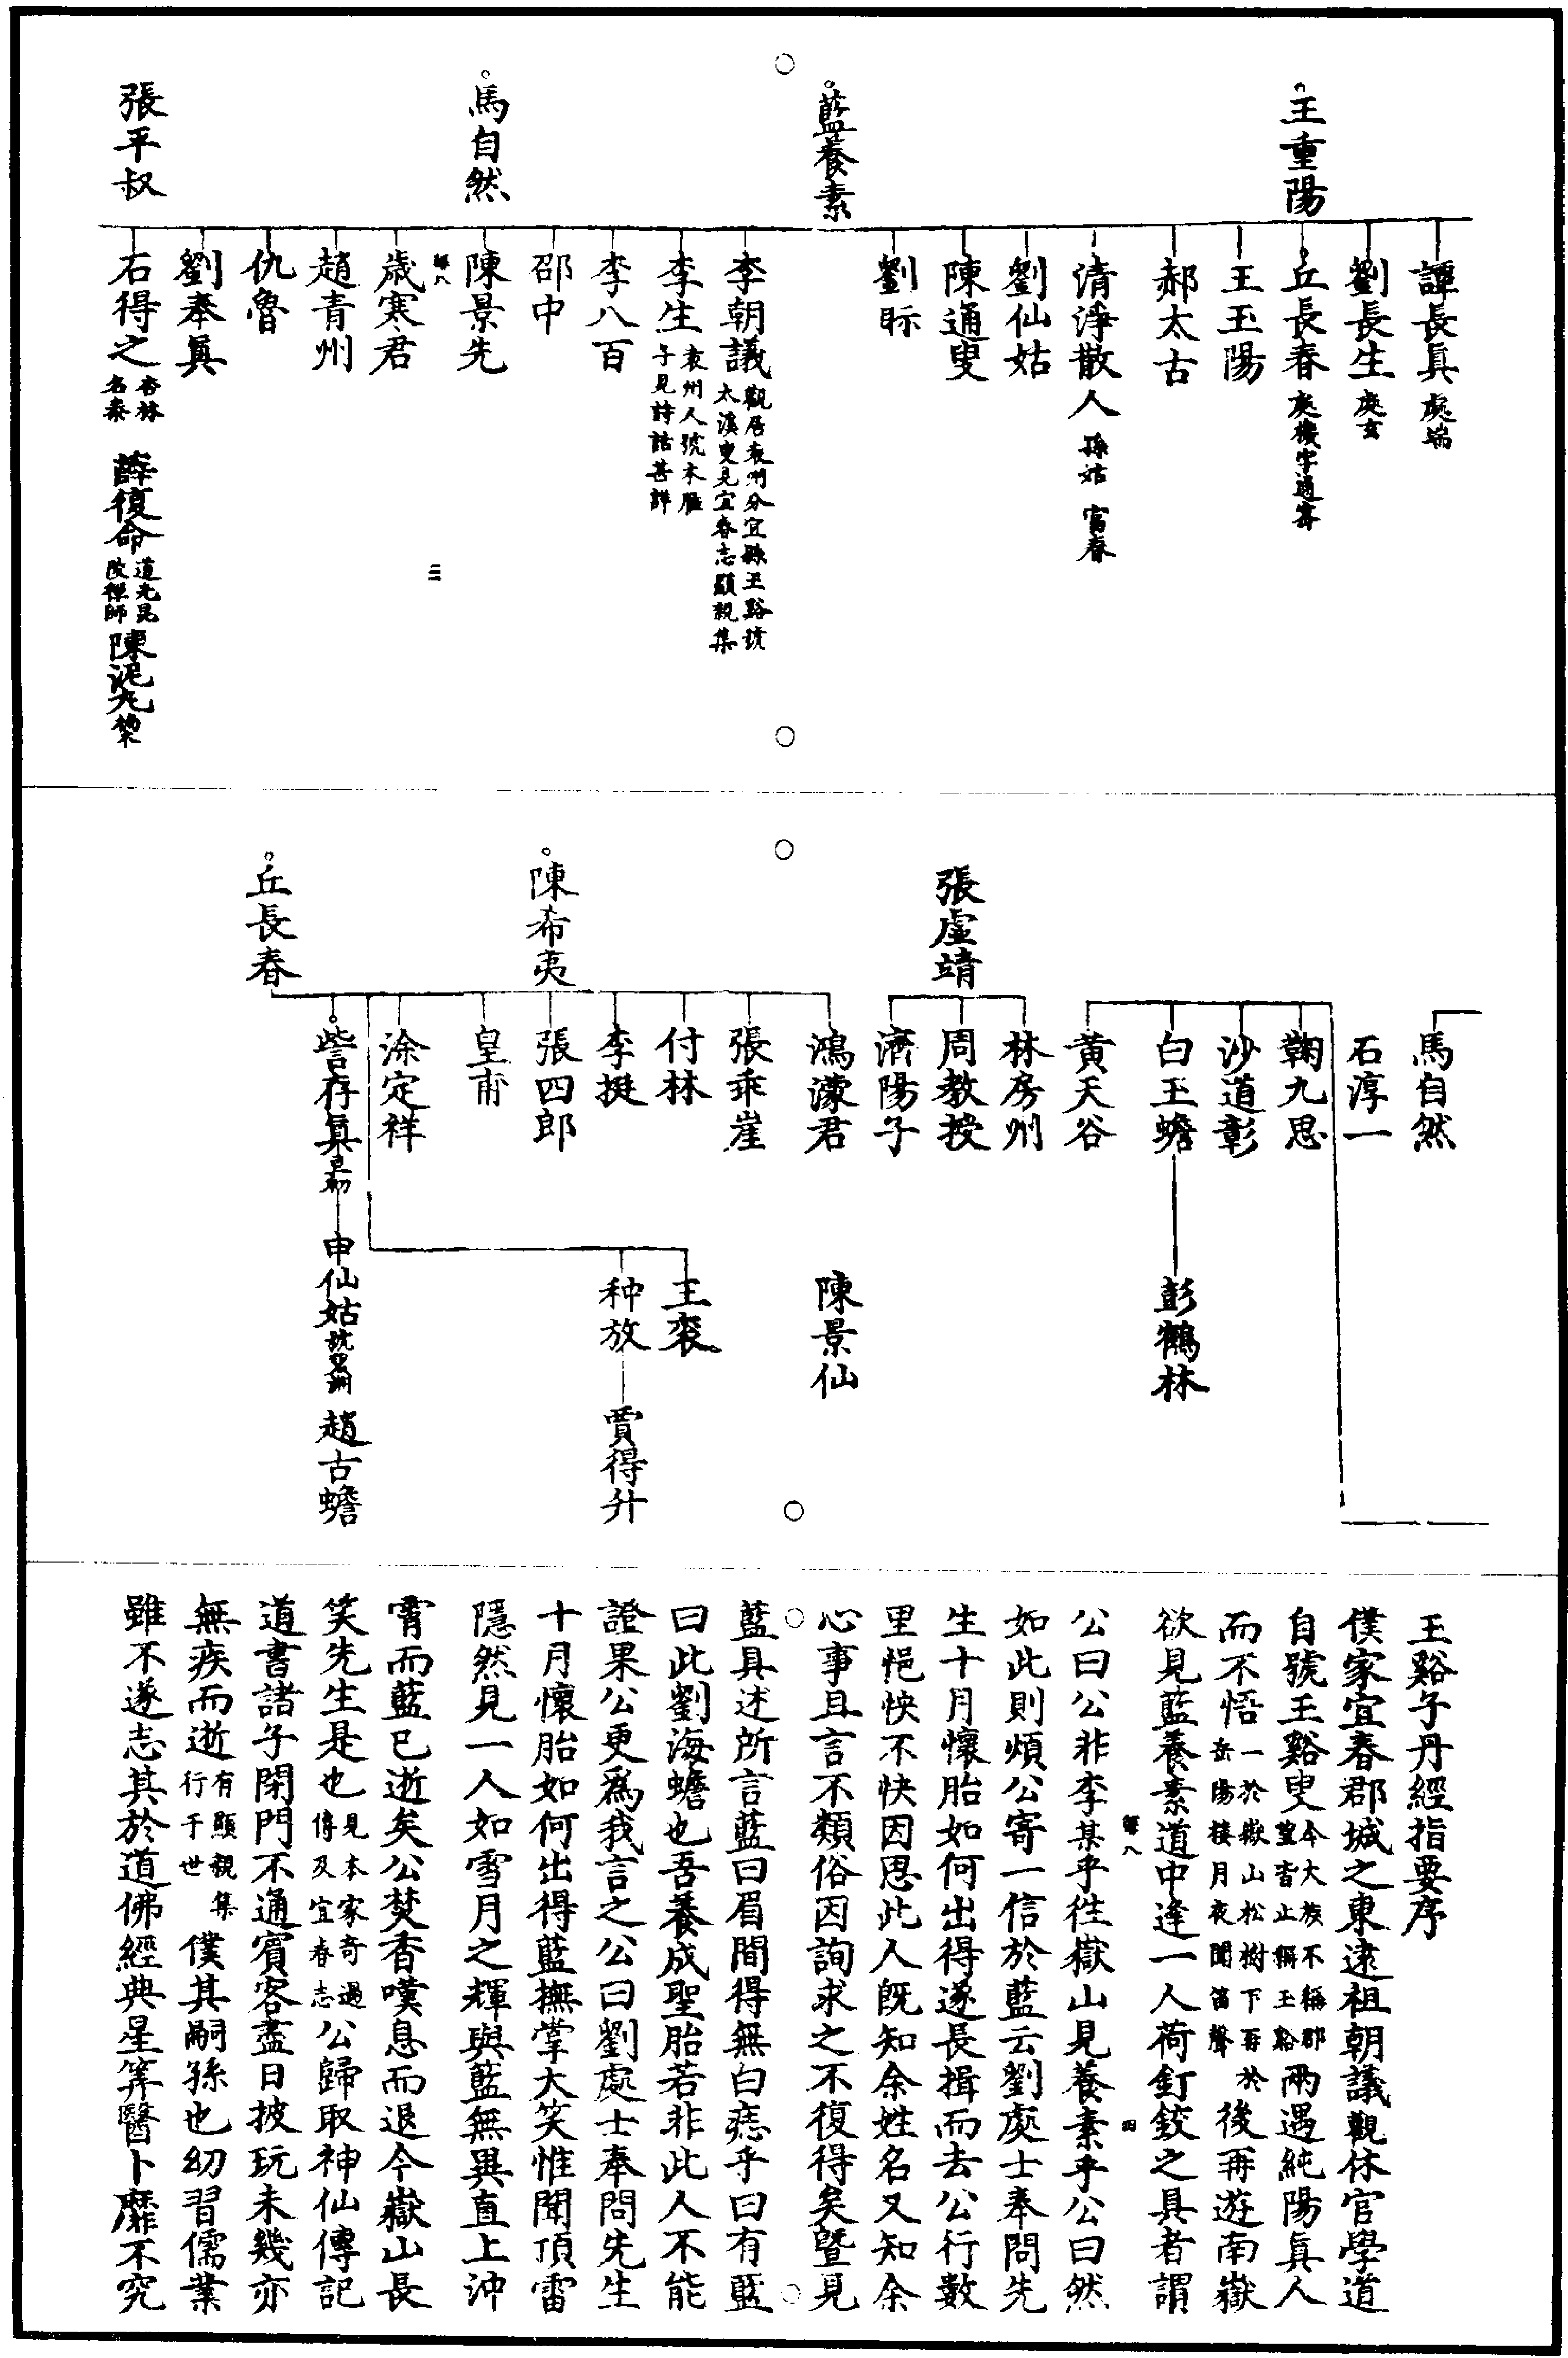 王重陽
譚長眞 處端
劉長生 處玄
丘長春 處機字通密
王玉陽
郝太古
清淨散人 孫姑 富春
劉仙姑
陳通叟
劉昹
藍養素
李朝議 觀居袁州分宜縣玉谿號
太溪叟見宜春志顯親集
李生 袁州人號木雁
子見詩話甚詳
李八百
邵中
陳景先
馬自然
歲寒君
趙青州
仇魯
劉奉眞
張平叔
石得之 杏林
名泰
薛復命 道光毘
陵禪師
陳泥丸 楠
三
馬自然
石淳一
鞠九思
沙道彰
白玉蟾 彭鶴林
黃天谷
張虛靖
林房州
周教授
濟陽子
鴻濛君 陳景仙
張乖崖
付林
李挺
張四郎
皇甫
陳希夷
王衮
种放 賈得升
涂定祥
丘長春
訾存眞 申仙姑 趙古蟾
玉谿子丹經指要序
僕家宜春郡城之東逮祖朝議觀休官學道
自號玉谿叟 今大族不稱郡
望者止稱玉谿 兩遇純陽眞人
而不悟 一於嶽山松樹下再於
岳陽樓月夜聞笛聲 後再遊南嶽
欲見藍養素道中逢一人荷釘鉸之具者謂
公曰公非李某乎往嶽山見養素乎公曰然
如此則煩公寄一信於藍云劉處士奉問先
生十月懷胎如何出得遂長揖而去公行數
里悒怏不快因思此人既知余姓名又知余
心事且言不類俗因詢求之不復得矣曁見
藍具述所言藍曰眉間得無白痣乎曰有藍
曰此劉海蟾也吾養成聖胎若非此人不能
證果公更爲我言之公曰劉處士奉問先生
十月懷胎如何出得藍撫掌大笑惟聞頂雷
隱然見一人如雪月之輝與藍無異直上沖
霄而藍已逝矣公焚香嘆息而退今嶽山長
笑先生是也 見本家奇遇
傳及宜春志 公歸取神仙傳記
道書諸子閉門不通賓客盡日披玩未幾亦
無疾而逝 有顯親集
行于世 僕其嗣孫也幼習儒業
雖不遂志其於道佛經典星筭醫卜靡不究
四